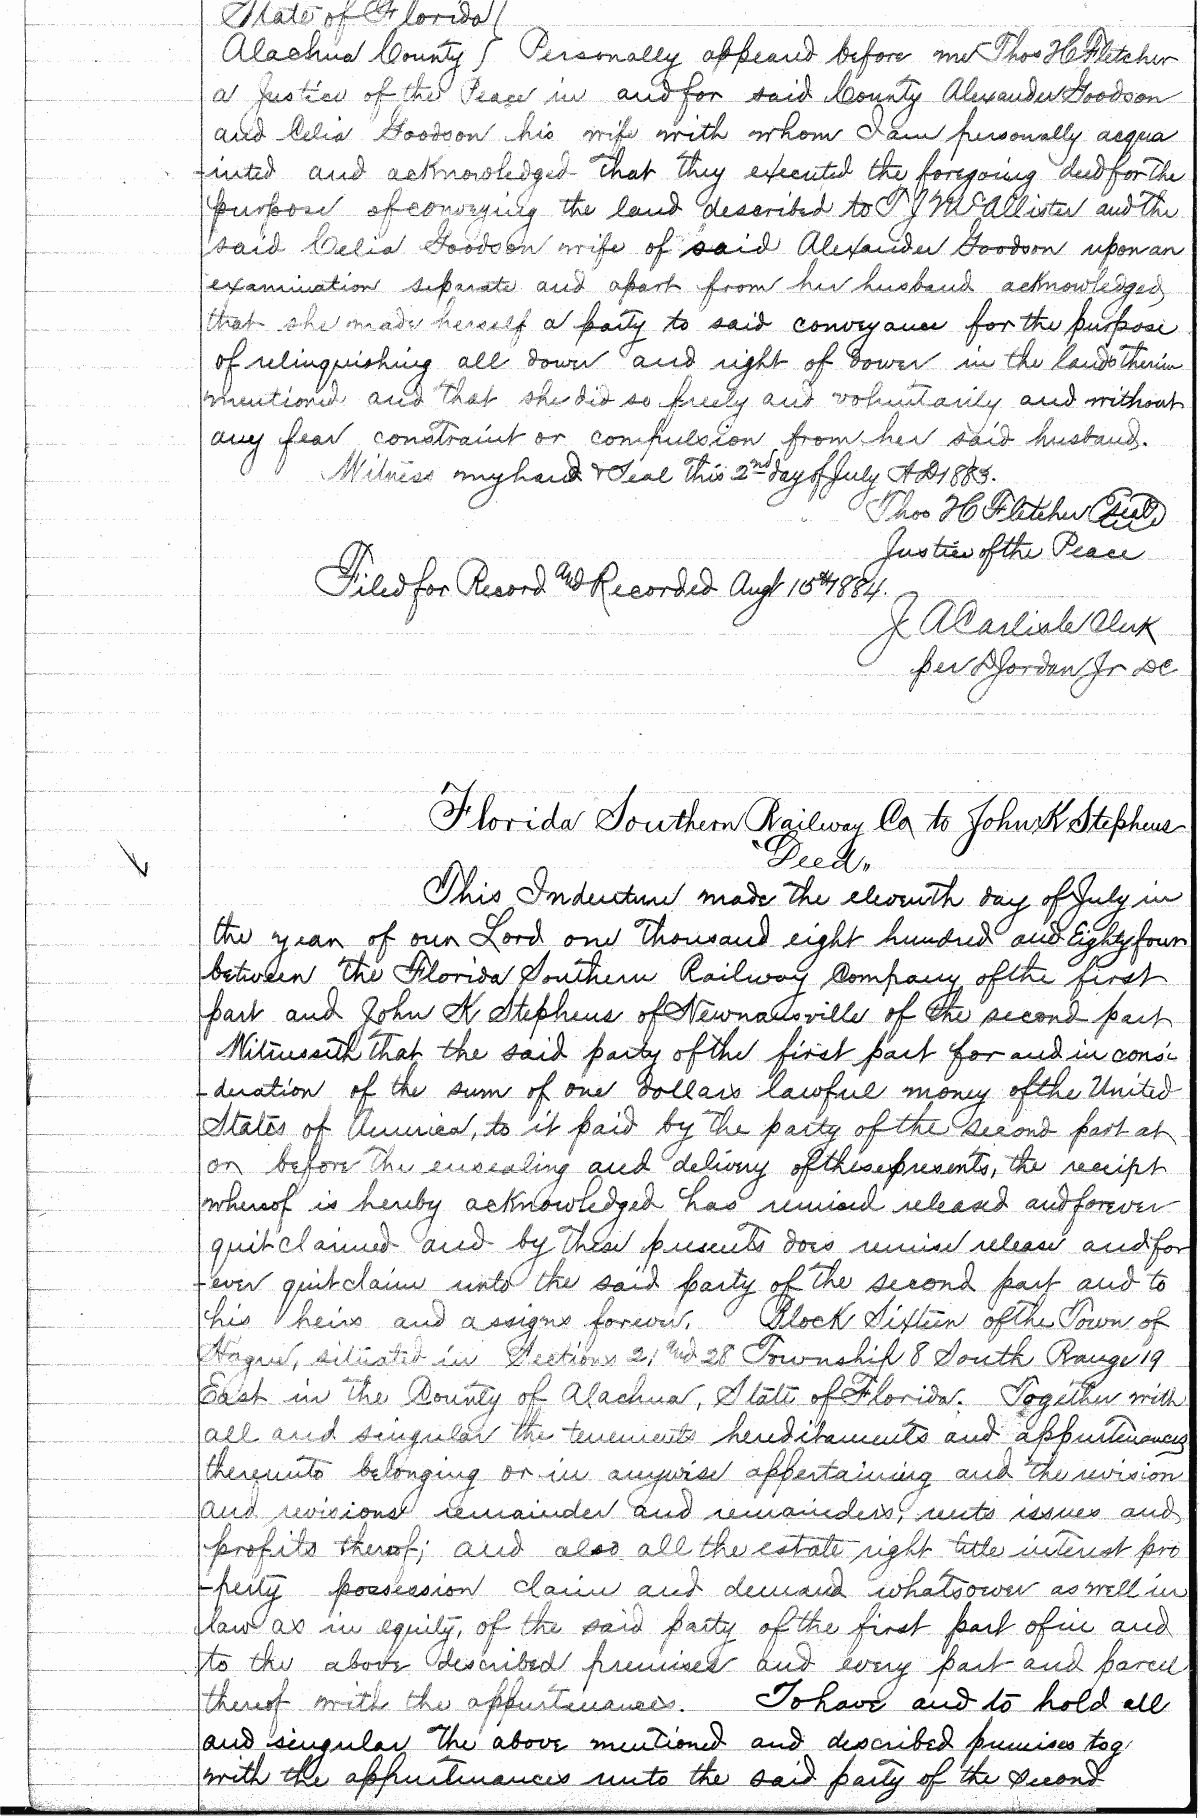 State of Florida
Alachua County Personally appeared before me Thos H Fletcher
a Justice of the Peace in and for said County Alexander Goodson
and Celia Goodson his wife with whom I am personally acqua
-inted and acknowledged that they executed the foregoing deed for the
purpose of conveying the land described to T J McAllister and the
said Celia Goodson wife of said Alexander Goodson upon an
examination separate and apart from her husband acknowledged
that she made herself a party to said conveyance for the purpose
of relinquishing all dower and right of dower in the lands therein
mentioned and that she did so freely and voluntarily and without
any fear constraint or compulsion from her said husband.
Witness my hand & Seal this 2nd day of July A D 1883.
Thos H Fletcher Seal
Justice of the Peace
Filed for Record and Recorded Augt 15th 1884.
J A Carlisle Clerk
per D Jordan Jr DC
Florida Southern Railway Co to John K Stephens
"Deed"
This Indenture made the eleventh day of July in
the year of our Lord one thousand eight hundred and Eighty four
between the Florida Southern Railway Company of the first
part and John K Stephens of Newnansville of the second part
Witnesseth that the said party of the first part for and in consi
-deration of the sum of one dollars lawful money of the United
States of America, to it paid by the party of the second part at
or before the ensealing and delivery of these presents, the receipt
whereof is hereby acknowledged has remised released and forever
quit claimed and by these presents does remise release and for
-ever quit claim unto the said party of the second part and to
his heirs and assigns forever. Block Sixteen of the Town of
Hague, situated in Sections 21 and 28 Township 8 South Range 19
East in the County of Alachua, State of Florida. Together with
all and singular the tenements hereditaments and appurtenances
thereunto belonging or in anywise appertaining and the revision
and revisions remainder and remainders, rents issues and
profits thereof; and also all the estate right title interest pro
-perty possession claim and demand whatsower as well in
law as in equity, of the said party of the first part of in and
to the above described premises and every part and parcel
thereof with the appurtenances. To have and to hold all
and singular the above mentioned and described premises tog
with the appurtenances unto the said party of the second